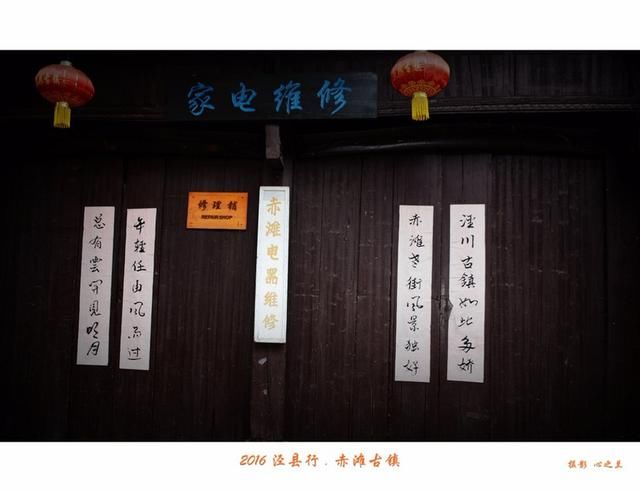 家电维修
修理
REPAIR SHOP
赤滩电器维修
总有雲开見明月
年轻任由风雨过
赤滩老街风景独好
泾川古鎮如此多娇
2016 泾县行 . 赤滩古镇
摄影 心之兰